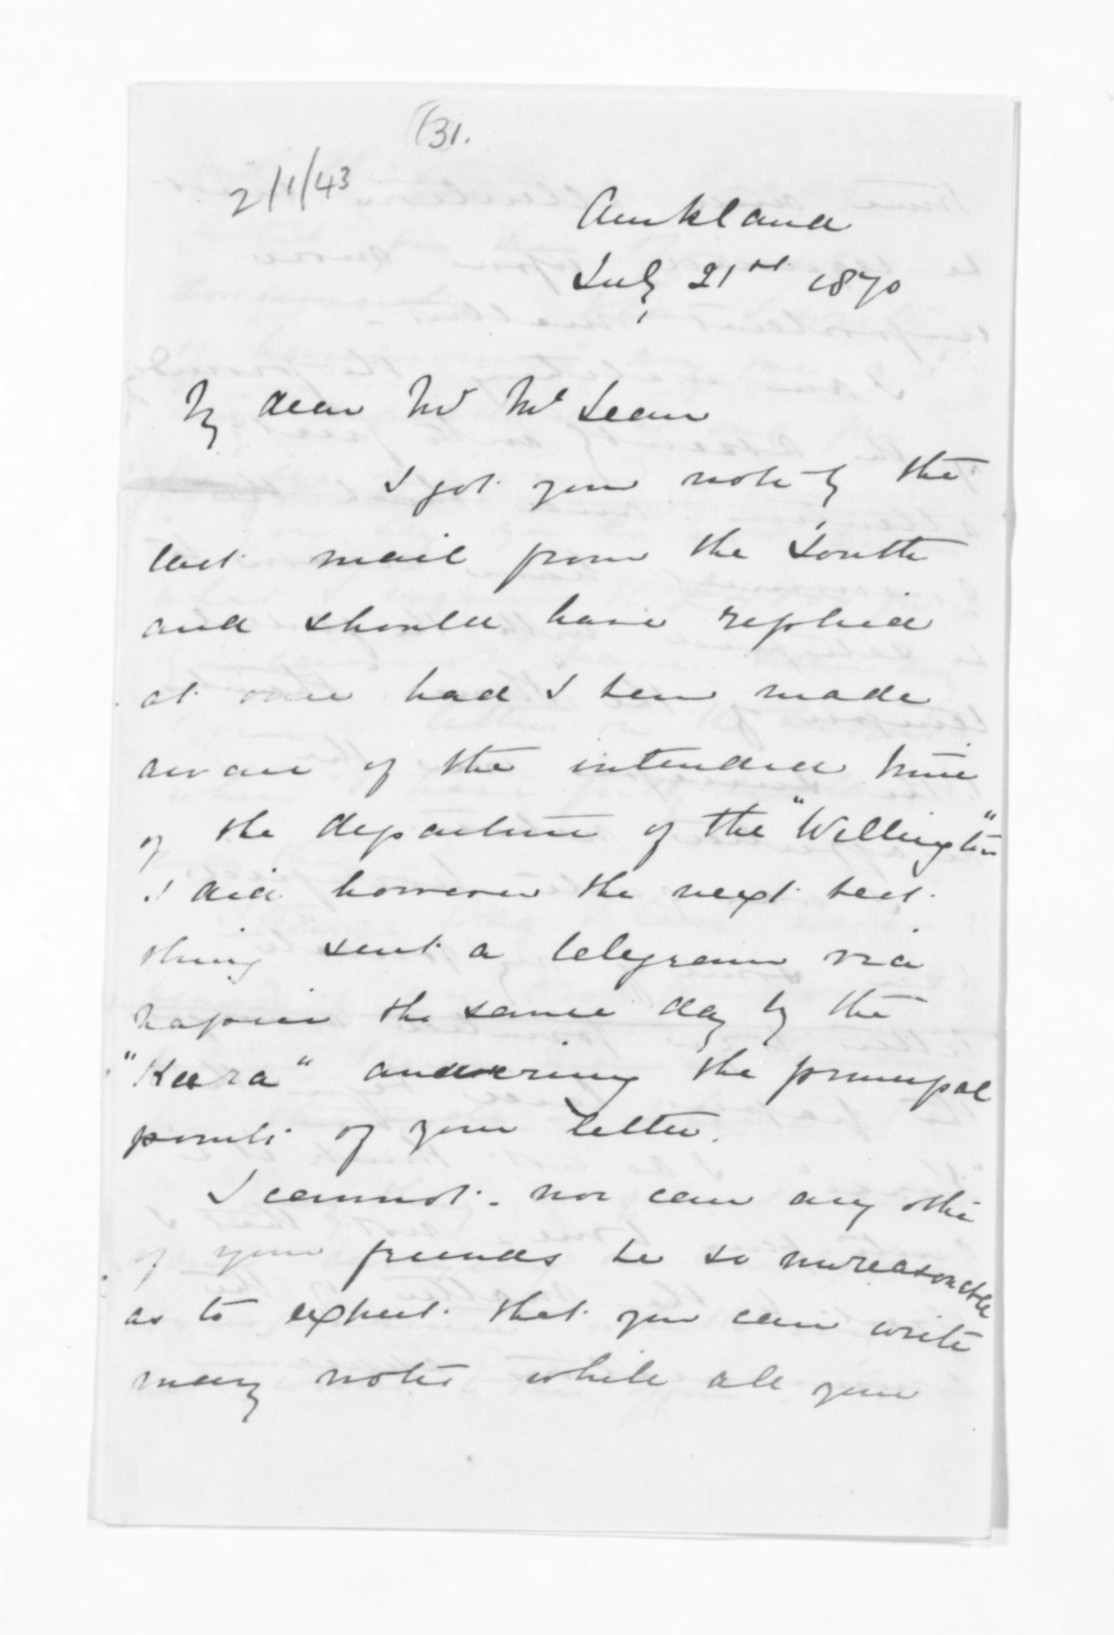 (31.
2/1/43
Auckland
July 21st 1870
My dear Mr McLean
I got your note by the
last mail from the South
and should have replied
at once had I been made
aware of the intended time
of the departure of the "Wellington"
I did however the next best
thing sent a telegram via
Napier the same day by the
"Keera" answering the principal
points of your letter.
I cannot - nor can any other
of your friends be so unreasonable
as to expect that you can write
many notes while all your